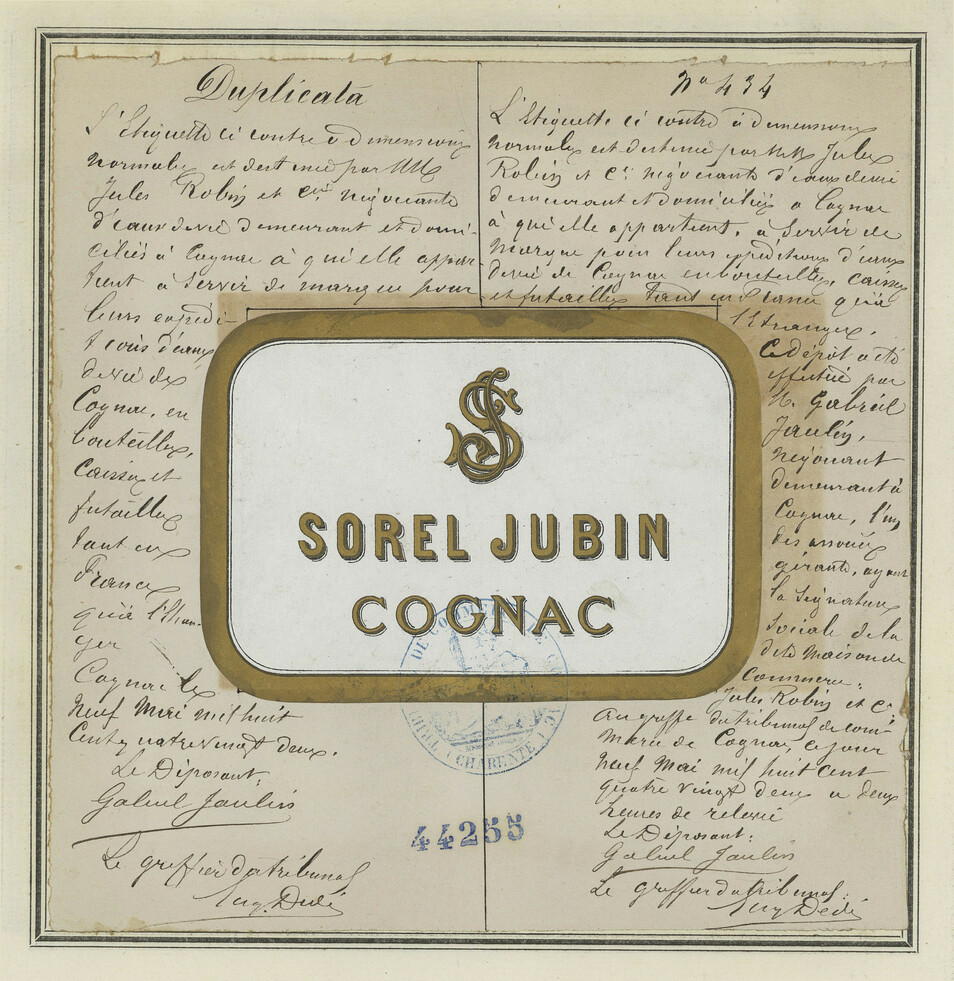 Duplicata
L'Etiquette ci contre à dimensions
normales est destinée par MM
Jules Robin et Cie négociants
d'eaux de vie demeurant et domi-
ciliés à Cognac à qui elle appar-
tient à servir de marque pour
leurs expédi-
tions d'eaux
de vie de
Cognac, en
bouteilles,
Caisses et
futailles
tant en
France
qu'à l'Etran-
ger
Cognac le
neuf Mai mil huit
cent quatre vingt deux.
Le Déposant:
Gabriel Jaulin
Le greffier du tribunal
Eug. Dedé
No 434
L'Etiquette ci contre à dimensions
normales est destinée par MM Jules
Robin et Cie négociants d'eaux de vie
demeurant et domiciliés à Cognac
à qui elle appartient, à servir de
marque pour leurs expéditions d'eaux
de vie de Cognac en bouteilles, caisses
et futailles tant en France qu'à
l'Etranger.
Ce dépôt a été
effectué par
M. Gabriel
Jaulin,
négociant
demeurant à
Cognac, l'un
des associés
gérants, ayant
la signature
sociale de la
dite Maison de
Commerce.
Jules Robin et Cie
au greffe du tribunal de com-
merce de Cognac, ce jour
neuf Mai mil huit cent
quatre vingt deux à deux
heures de relevée
Le Déposant:
Gabriel Jaulin
Le greffier du tribunal:
Eug Dedé
SJ
SOREL JUBIN
COGNAC
DE COMMERCE DE
CHARENTE
44255